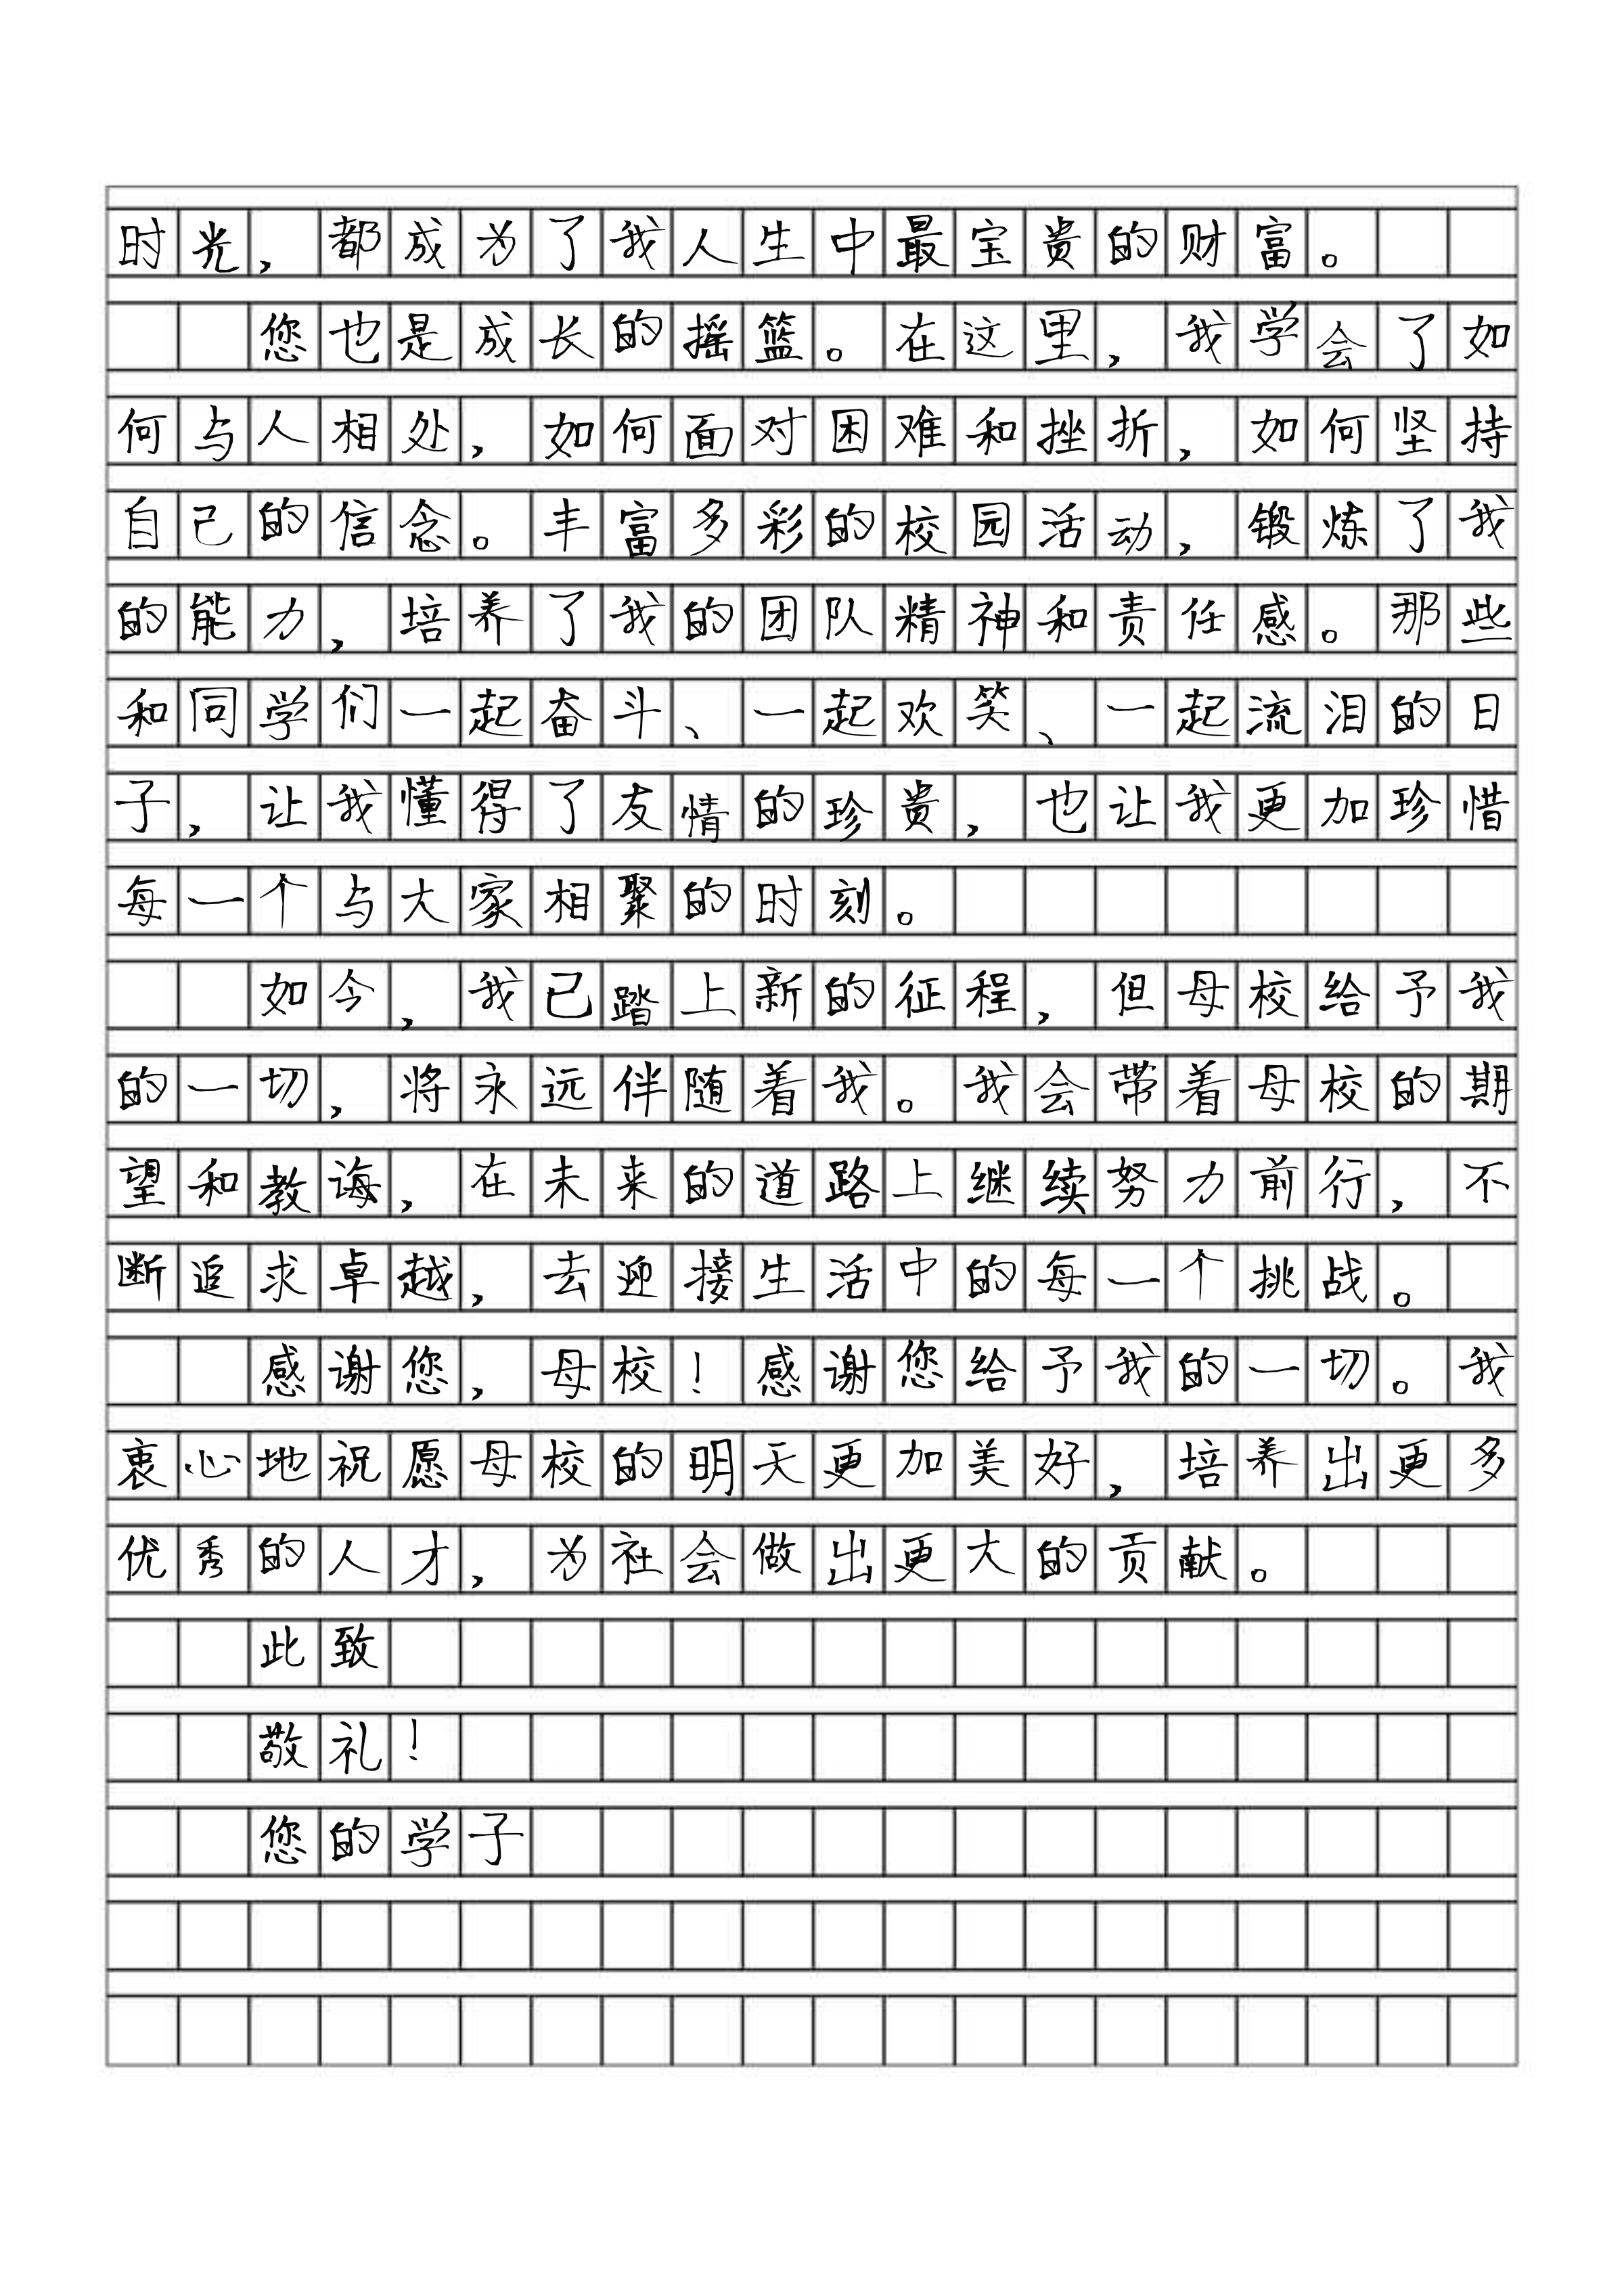 时光，都成为了我人生中最宝贵的财富。
您也是成长的摇篮。在这里，我学会了如
何与人相处，如何面对困难和挫折，如何坚持
自己的信念。丰富多彩的校园活动，锻炼了我
的能力，培养了我的团队精神和责任感。那些
和同学们一起奋斗、一起欢笑、一起流泪的日
子，让我懂得了友情的珍贵，也让我更加珍惜
每一个与大家相聚的时刻。
如今，我已踏上新的征程，但母校给予我
的一切，将永远伴随着我。我会带着母校的期
望和教诲，在未来的道路上继续努力前行，不
断追求卓越，去迎接生活中的每一个挑战。
感谢您，母校！感谢您给予我的一切。我
衷心地祝愿母校的明天更加美好，培养出更多
优秀的人才，为社会做出更大的贡献。
此致
敬礼！
您的学子